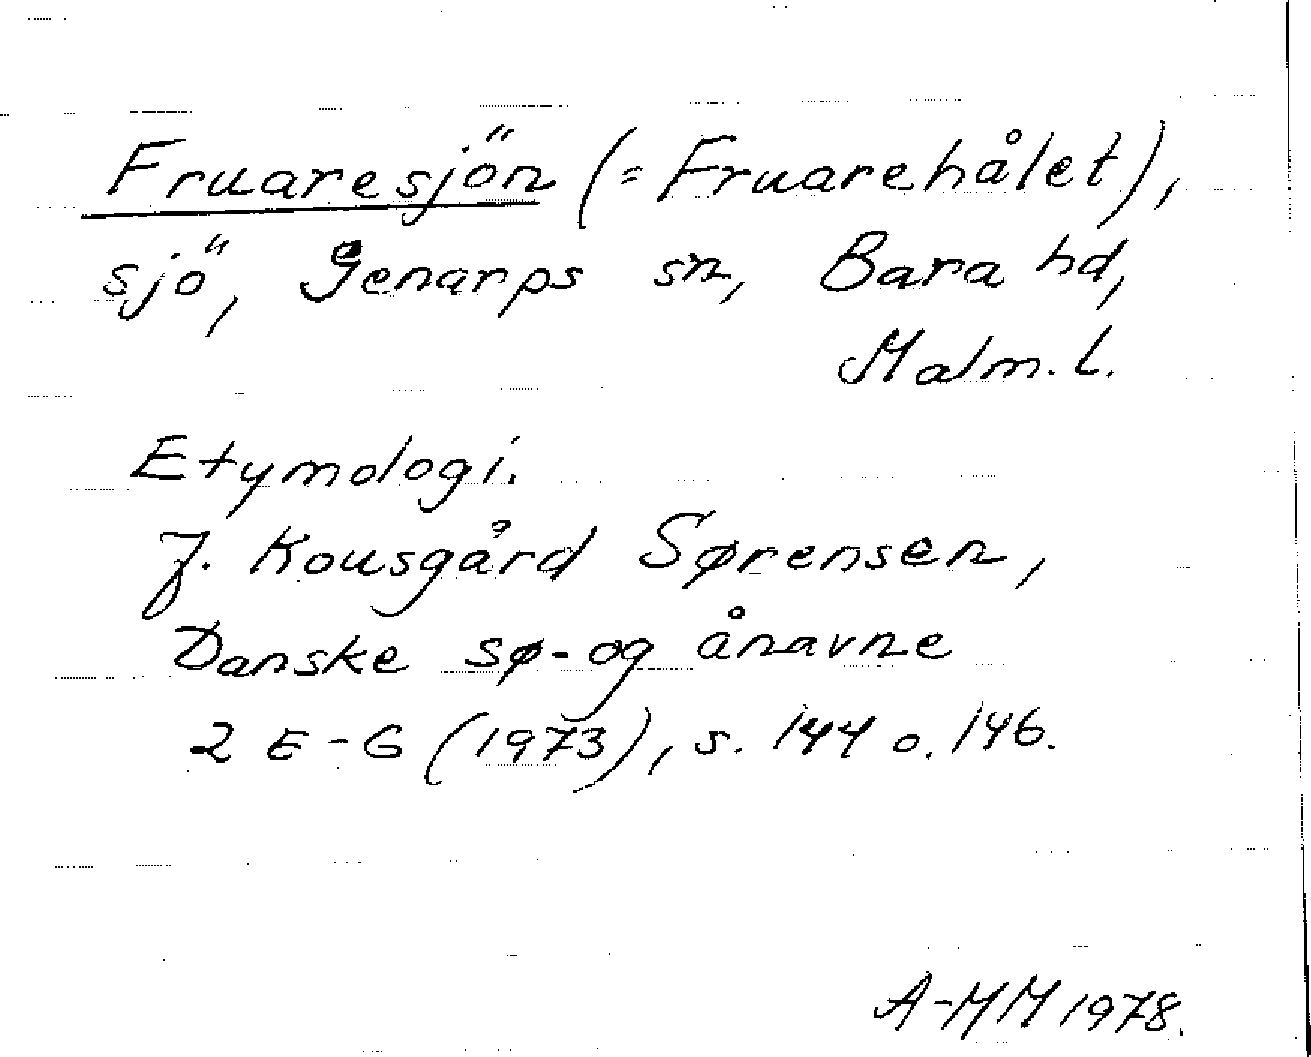 Fruaresjön (= Fruarehålet),
sjö, Genarps sn, Bara hd,
Malm. l.
Etymologi.
J. Kousgård Sørensen,
Danske sø- og ånavne
2 E-G (1973), s. 144 o. 146.
A-MM 1978.